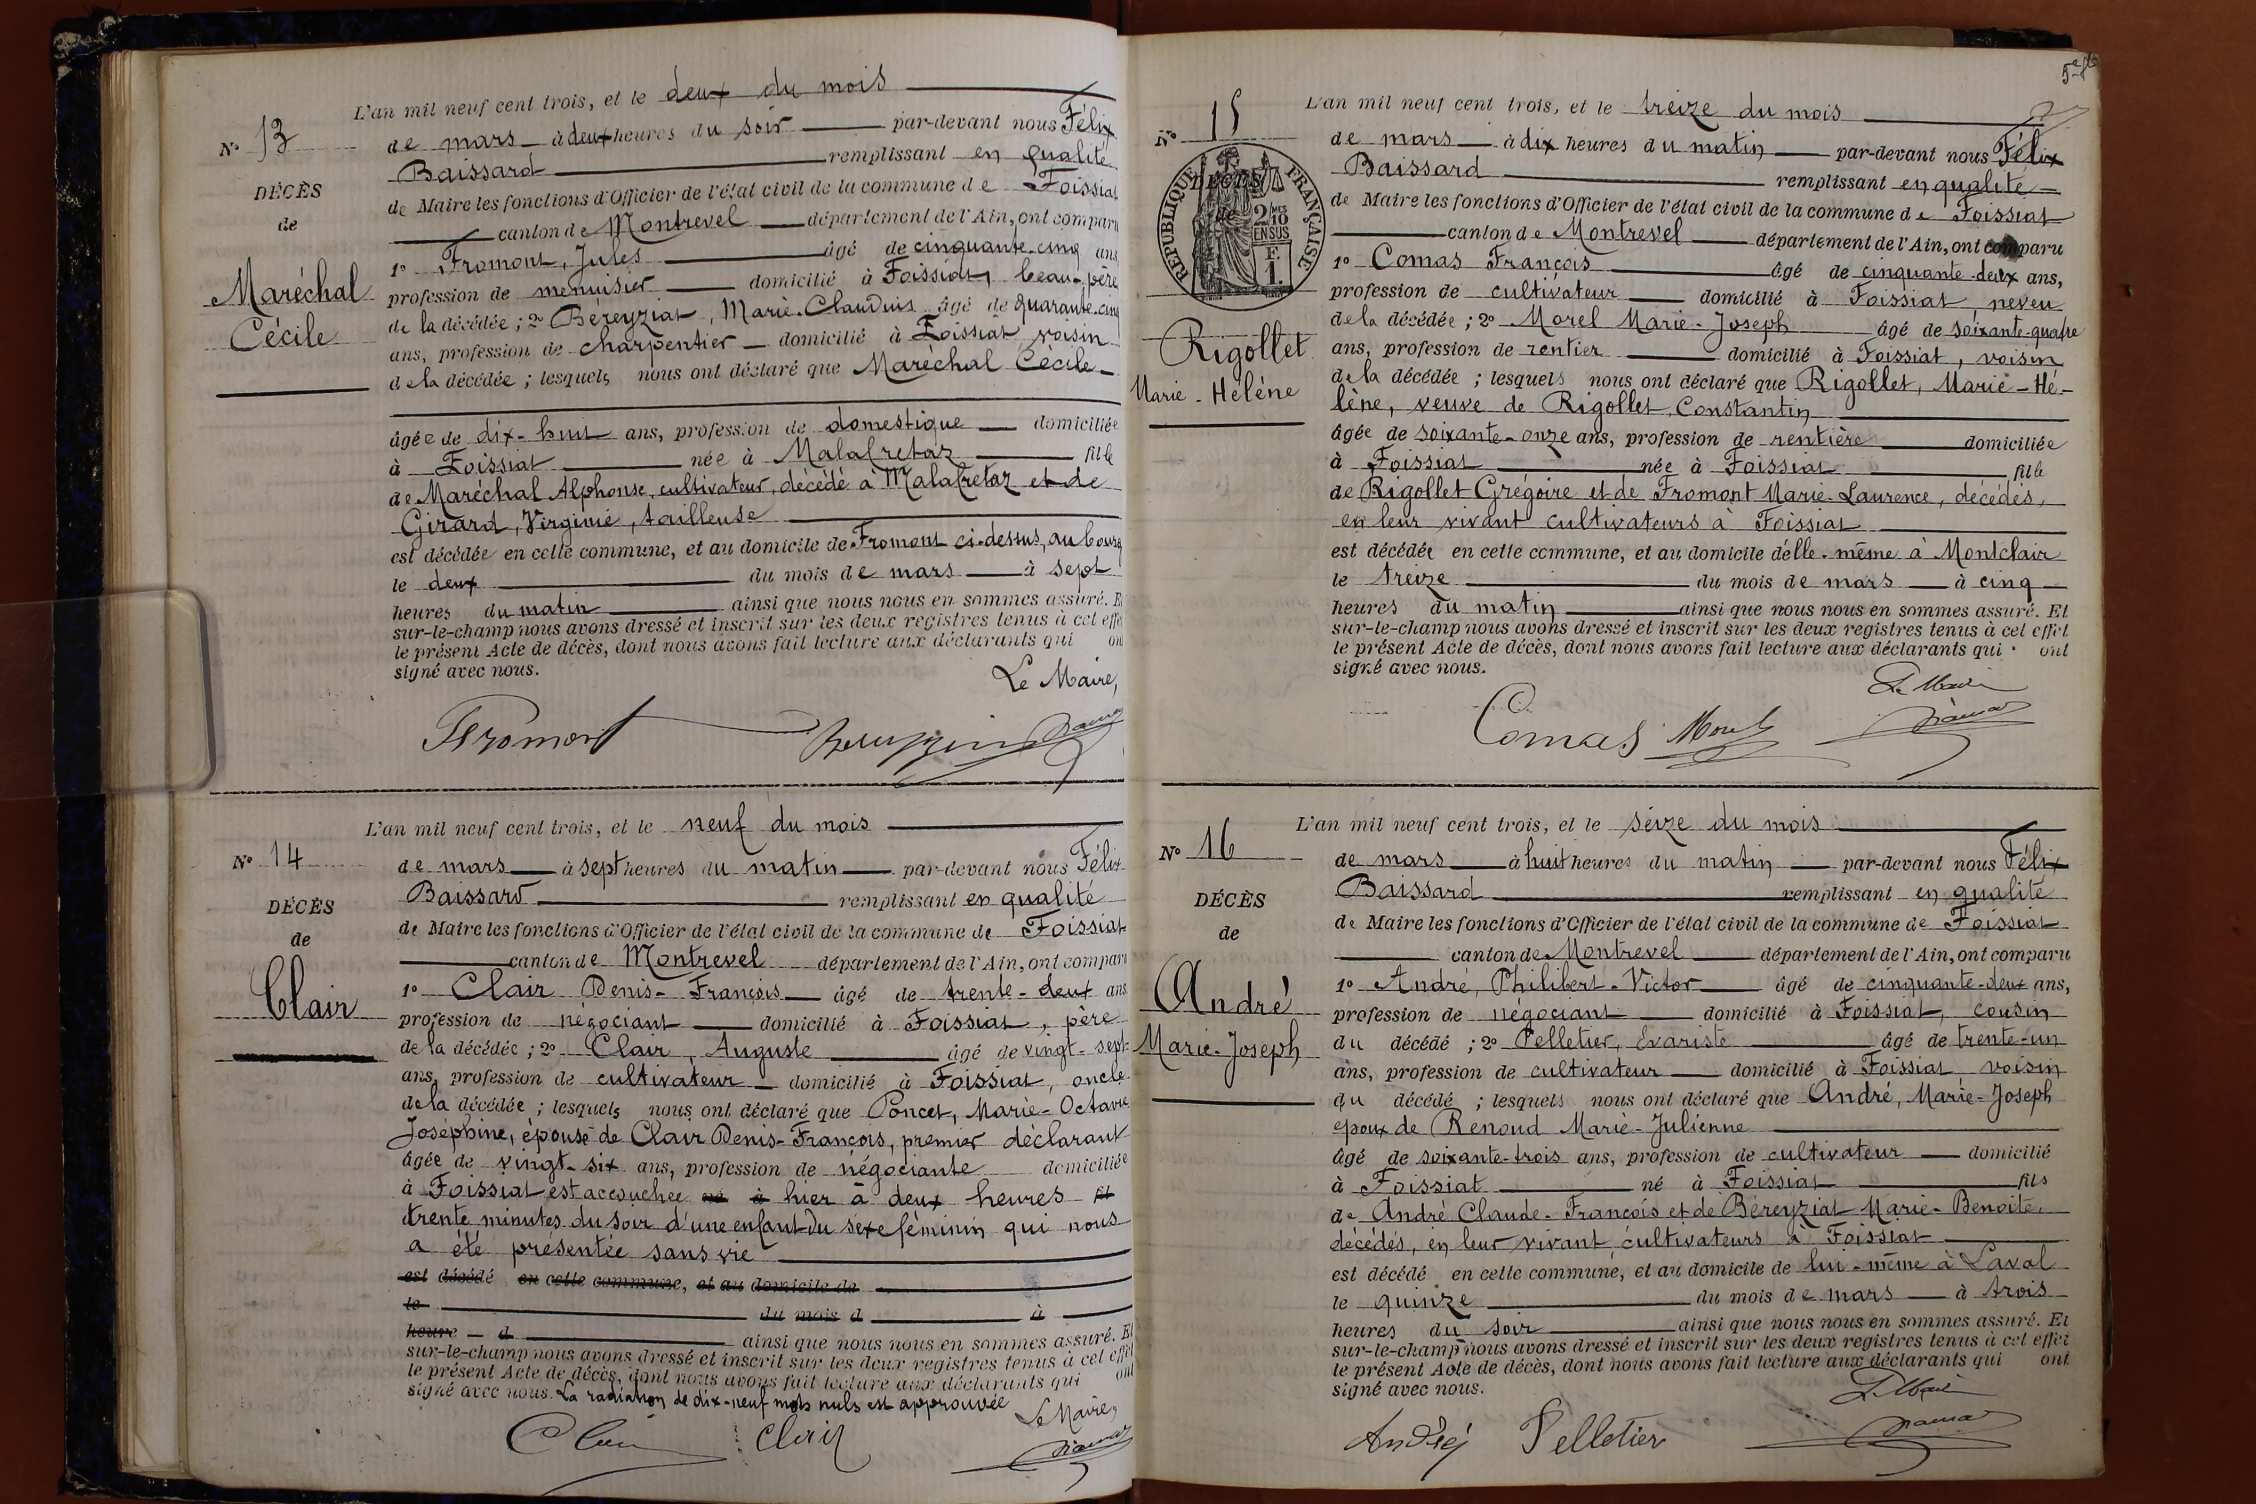 L'an mil neuf cent trois, et le deux du mois
N° 13
de mars à deux heures du soir par-devant nous Félix
Baissard remplissant en qualité
DÉCÈS
de Maire les fonctions d'Officier de l'état civil de la commune de Foissiat
de
canton de Montrevel département de l'Ain, ont comparu
1° Fromont, Jules âgé de cinquante-cinq ans
Maréchal
profession de menuisier domicilié à Foissiat, beau-père
de la décédée ; 2° Béreyziat, Marie-Claudius âgé de quarante-cinq
Cécile
ans, profession de charpentier domicilié à Foissiat voisin
de la décédée ; lesquels nous ont déclaré que Maréchal Cécile
âgée de dix-huit ans, profession de domestique domiciliée
à Foissiat née à Malafretaz fille
de Maréchal Alphonse, cultivateur, décédé à Malafretaz et de
Girard, Virginie, tailleuse
est décédée en cette commune, et au domicile de Fromont ci-dessus, au bourg
le deux du mois de mars à sept
heures du matin ainsi que nous nous en sommes assuré. Et
sur-le-champ nous avons dressé et inscrit sur les deux registres tenus à cet effet
le présent Acte de décès, dont nous avons fait lecture aux déclarants qui ont
signé avec nous.
Le Maire,
Fromont
L'an mil neuf cent trois, et le neuf du mois
N° 14
de mars à sept heures du matin par-devant nous Félix
Baissard remplissant en qualité
DÉCÈS
de Maire les fonctions d'Officier de l'état civil de la commune de Foissiat
de
canton de Montrevel département de l'Ain, ont comparu
Clair
1° Clair Denis-François âgé de trente-deux ans
profession de négociant domicilié à Foissiat, père
de la décédée ; 2° Clair, Auguste âgé de vingt-sept
ans, profession de cultivateur domicilié à Foissiat, oncle
de la décédée ; lesquels nous ont déclaré que Poncet, Marie-Octavie
Joséphine, épouse de Clair Denis-François, premier déclarant
âgée de vingt-six ans, profession de négociante domiciliée
à Foissiat est accouchée né à hier à deux heures fil
trente minutes du soir d'une enfant du sexe féminin qui nous
a été présentée sans vie
est décédé en cette commune, et au domicile de
le du mois d à
heure d ainsi que nous nous en sommes assuré. Et
sur-le-champ nous avons dressé et inscrit sur les deux registres tenus à cet effet
le présent Acte de décès, dont nous avons fait lecture aux déclarants qui ont
signé avec nous. La radiation de dix-neuf mots nuls est approuvée
Le Maire,
Clair Clair
5e fto
L'an mil neuf cent trois, et le treize du mois
N° 15
de mars à dix heures du matin par-devant nous Félix
Baissard remplissant en qualité
RÉPUBLIQUE FRANÇAISE
DÉCÈS
de
2/10 MES EN SUS
F. 1
de Maire les fonctions d'Officier de l'état civil de la commune de Foissiat
canton de Montrevel département de l'Ain, ont comparu
1° Comas François âgé de cinquante-deux ans,
profession de cultivateur domicilié à Foissiat, neveu
de la décédée ; 2° Morel Marie-Joseph âgé de soixante-quatre
Rigollet
ans, profession de rentier domicilié à Foissiat, voisin
de la décédée ; lesquels nous ont déclaré que Rigollet, Marie-Hé-
Marie-Hélène
lène, veuve de Rigollet, Constantin
âgée de soixante-onze ans, profession de rentière domiciliée
à Foissiat née à Foissiat fille
de Rigollet Grégoire et de Fromont Marie-Laurence, décédés,
en leur vivant cultivateurs à Foissiat
est décédée en cette commune, et au domicile d'elle-même à Montclair
le treize du mois de mars à cinq
heures du matin ainsi que nous nous en sommes assuré. Et
sur-le-champ nous avons dressé et inscrit sur les deux registres tenus à cet effet
le présent Acte de décès, dont nous avons fait lecture aux déclarants qui ont
signé avec nous.
Le Maire
Comas Morel
L'an mil neuf cent trois, et le seize du mois
N° 16
de mars à huit heures du matin par-devant nous Félix
Baissard remplissant en qualité
DÉCÈS
de Maire les fonctions d'Officier de l'état civil de la commune de Foissiat
de
canton de Montrevel département de l'Ain, ont comparu
1° André, Philibert-Victor âgé de cinquante-deux ans,
André
profession de négociant domicilié à Foissiat, cousin
Marie-Joseph
du décédé ; 2° Pelletier, Evariste âgé de trente-un
ans, profession de cultivateur domicilié à Foissiat voisin
du décédé ; lesquels nous ont déclaré que André, Marie-Joseph
époux de Renoud Marie-Julienne
âgé de soixante-trois ans, profession de cultivateur domicilié
à Foissiat né à Foissiat fils
de André Claude-François et de Béreyziat Marie-Benoite,
décédés, en leur vivant cultivateurs à Foissiat
est décédé en cette commune, et au domicile de lui-même à Laval
le quinze du mois de mars à trois
heures du soir ainsi que nous nous en sommes assuré. Et
sur-le-champ nous avons dressé et inscrit sur les deux registres tenus à cet effet
le présent Acte de décès, dont nous avons fait lecture aux déclarants qui ont
signé avec nous.
Le Maire
André Pelletier